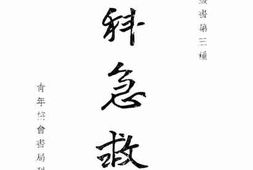 叢書第三種
科急救
青年協會書局刊